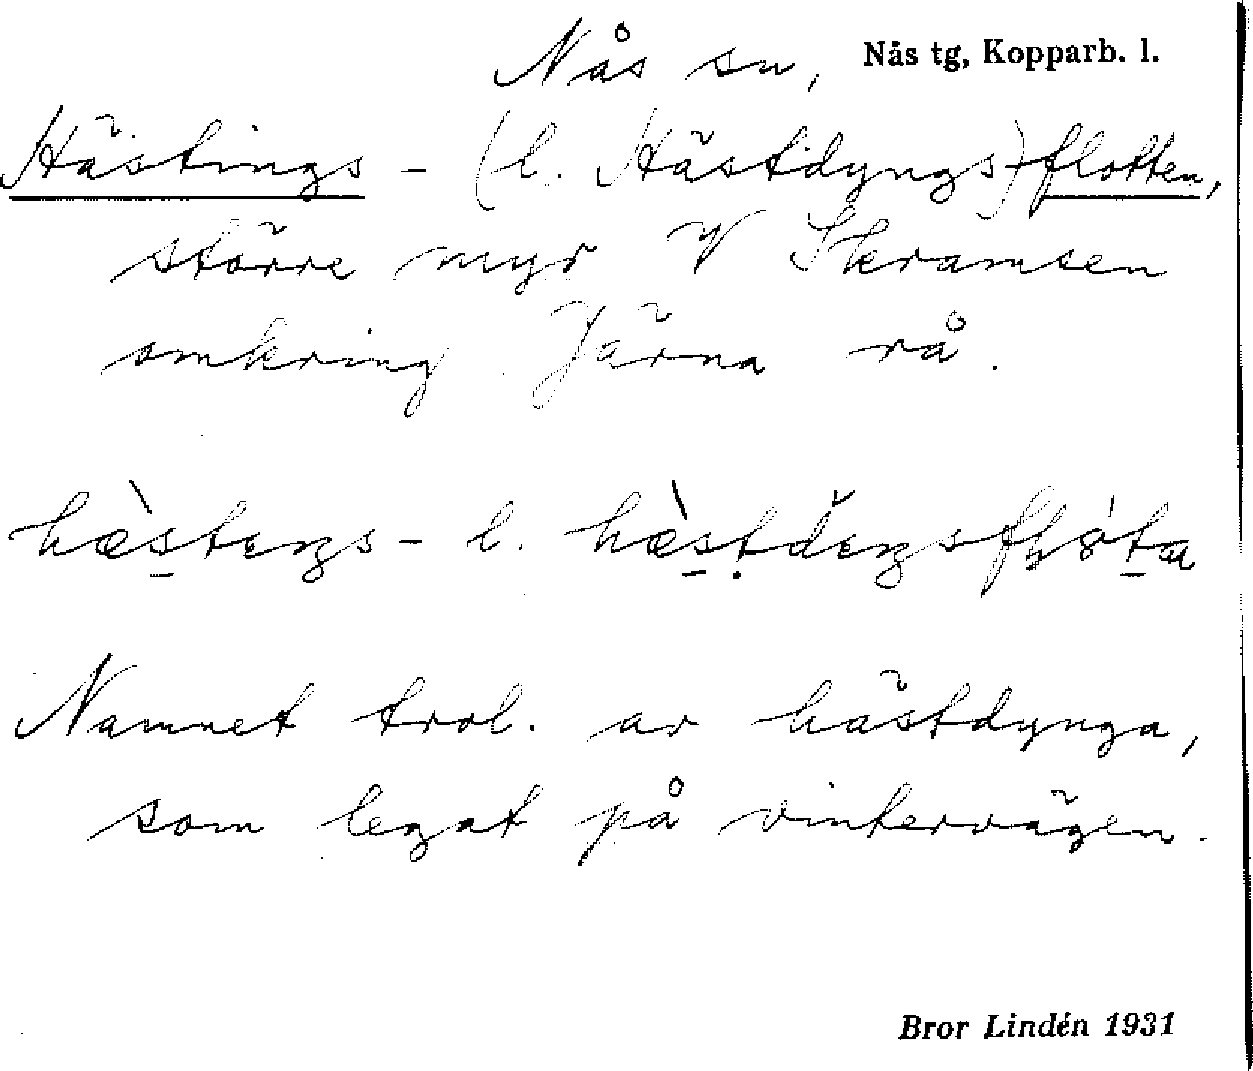 Nås sn, Nås tg, Kopparb. l.
Hästings - (l. Hästdyngs)flotten,
större myr V Skramsen
omkring Järna rå.
hæ̀steŋs- l. hæ̀stdeŋsflo̊ta
Namnet trol. av hästdynga,
som legat på vintervägen.
Bror Lindén 1931